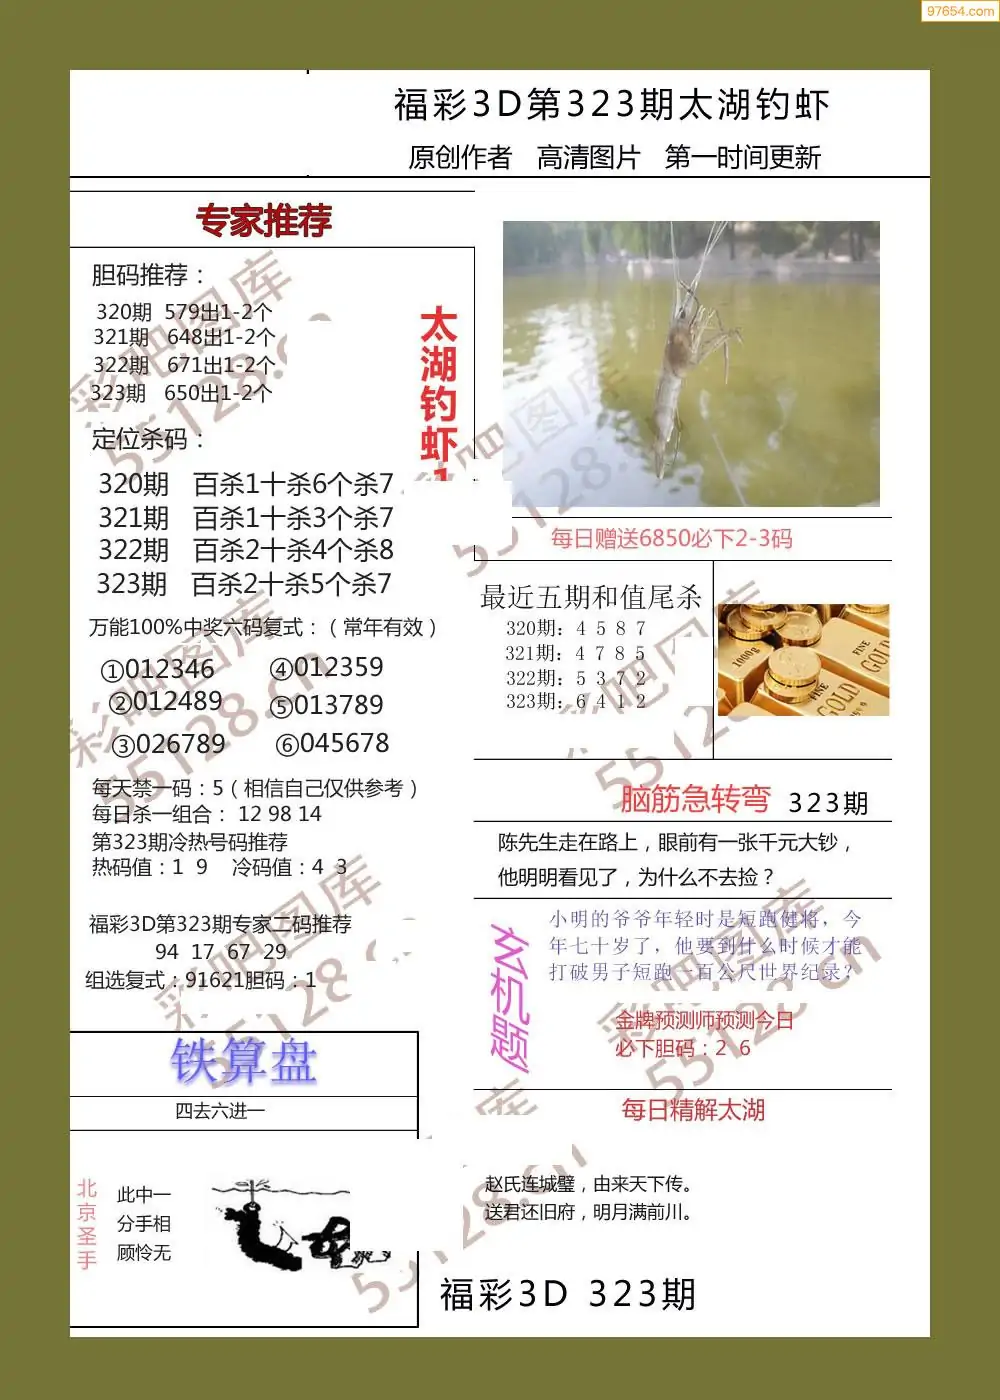 97654.com
福彩3D第323期太湖钓虾
原创作者 高清图片 第一时间更新
专家推荐
胆码推荐：
320期 579出1-2个
321期 648出1-2个
322期 671出1-2个
323期 650出1-2个
太湖钓虾
定位杀码：
320期 百杀1十杀6个杀7
321期 百杀1十杀3个杀7
322期 百杀2十杀4个杀8
323期 百杀2十杀5个杀7
万能100%中奖六码复式：（常年有效）
①012346 ④012359
②012489 ⑤013789
③026789 ⑥045678
每天禁一码：5（相信自己仅供参考）
每日杀一组合： 12 98 14
第323期冷热号码推荐
热码值：1 9 冷码值：4 3
福彩3D第323期专家二码推荐
94 17 67 29
组选复式：91621胆码：1
铁算盘
四去六进一
北京圣手
此中一
分手相
顾怜无
每日赠送6850必下2-3码
最近五期和值尾杀
320期：4 5 8 7
321期：4 7 8 5
322期：5 3 7 2
323期：6 4 1 2
1000g
FINE
GOLD
FINE
GOLD
脑筋急转弯 323期
陈先生走在路上，眼前有一张千元大钞，
他明明看见了，为什么不去捡？
玄机题
小明的爷爷年轻时是短跑健将，今
年七十岁了，他要到什么时候才能
打破男子短跑一百公尺世界纪录？
金牌预测师预测今日
必下胆码：2 6
每日精解太湖
赵氏连城璧，由来天下传。
送君还旧府，明月满前川。
福彩3D 323期
彩吧图库
55128.cn